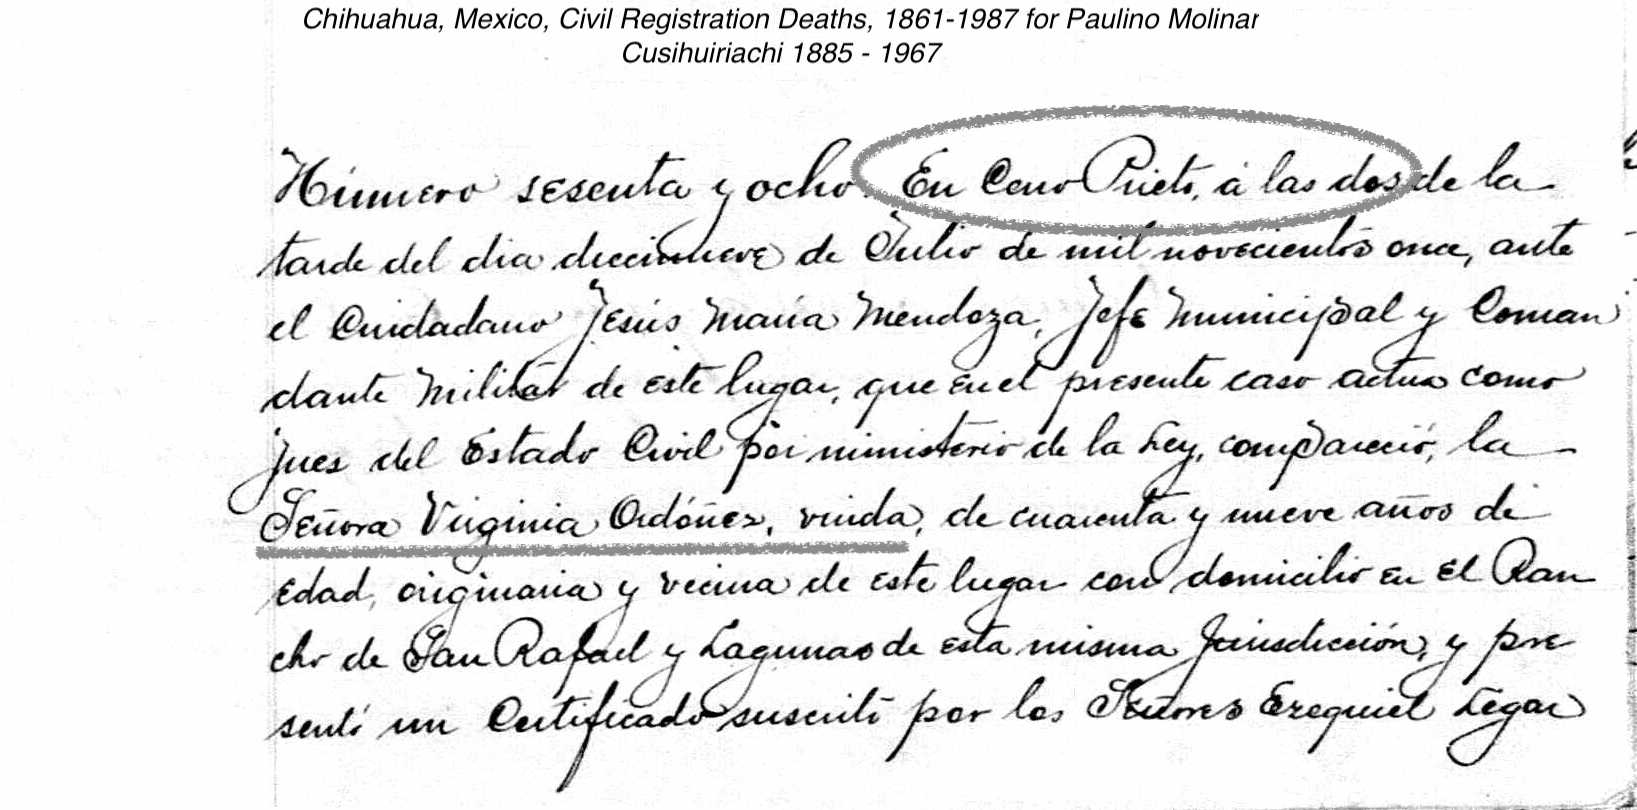 Chihuahua, Mexico, Civil Registration Deaths, 1861-1987 for Paulino Molinar
Cusihuiriachi 1885 - 1967
Número sesenta y ocho. En Cerro Prieto, á las dos de la
tarde del dia diecinueve de Julio de mil novecientos once, ante
el Ciudadano Jesús María Mendoza, Jefe Municipal y Coman
dante Militar de este lugar, que en el presente caso actua como
Jues del Estado Civil por ministerio de la Ley, compareció, la
Señora Virginia Ordóñez, viuda, de cuarenta y nueve años de
edad, originaria y vecina de este lugar con domicilio en El Ran
cho de San Rafael y Lagunas de esta misma Jurisdicción, y pre
sentó un Certificado suscrito por los Señores Ezequiel Legar